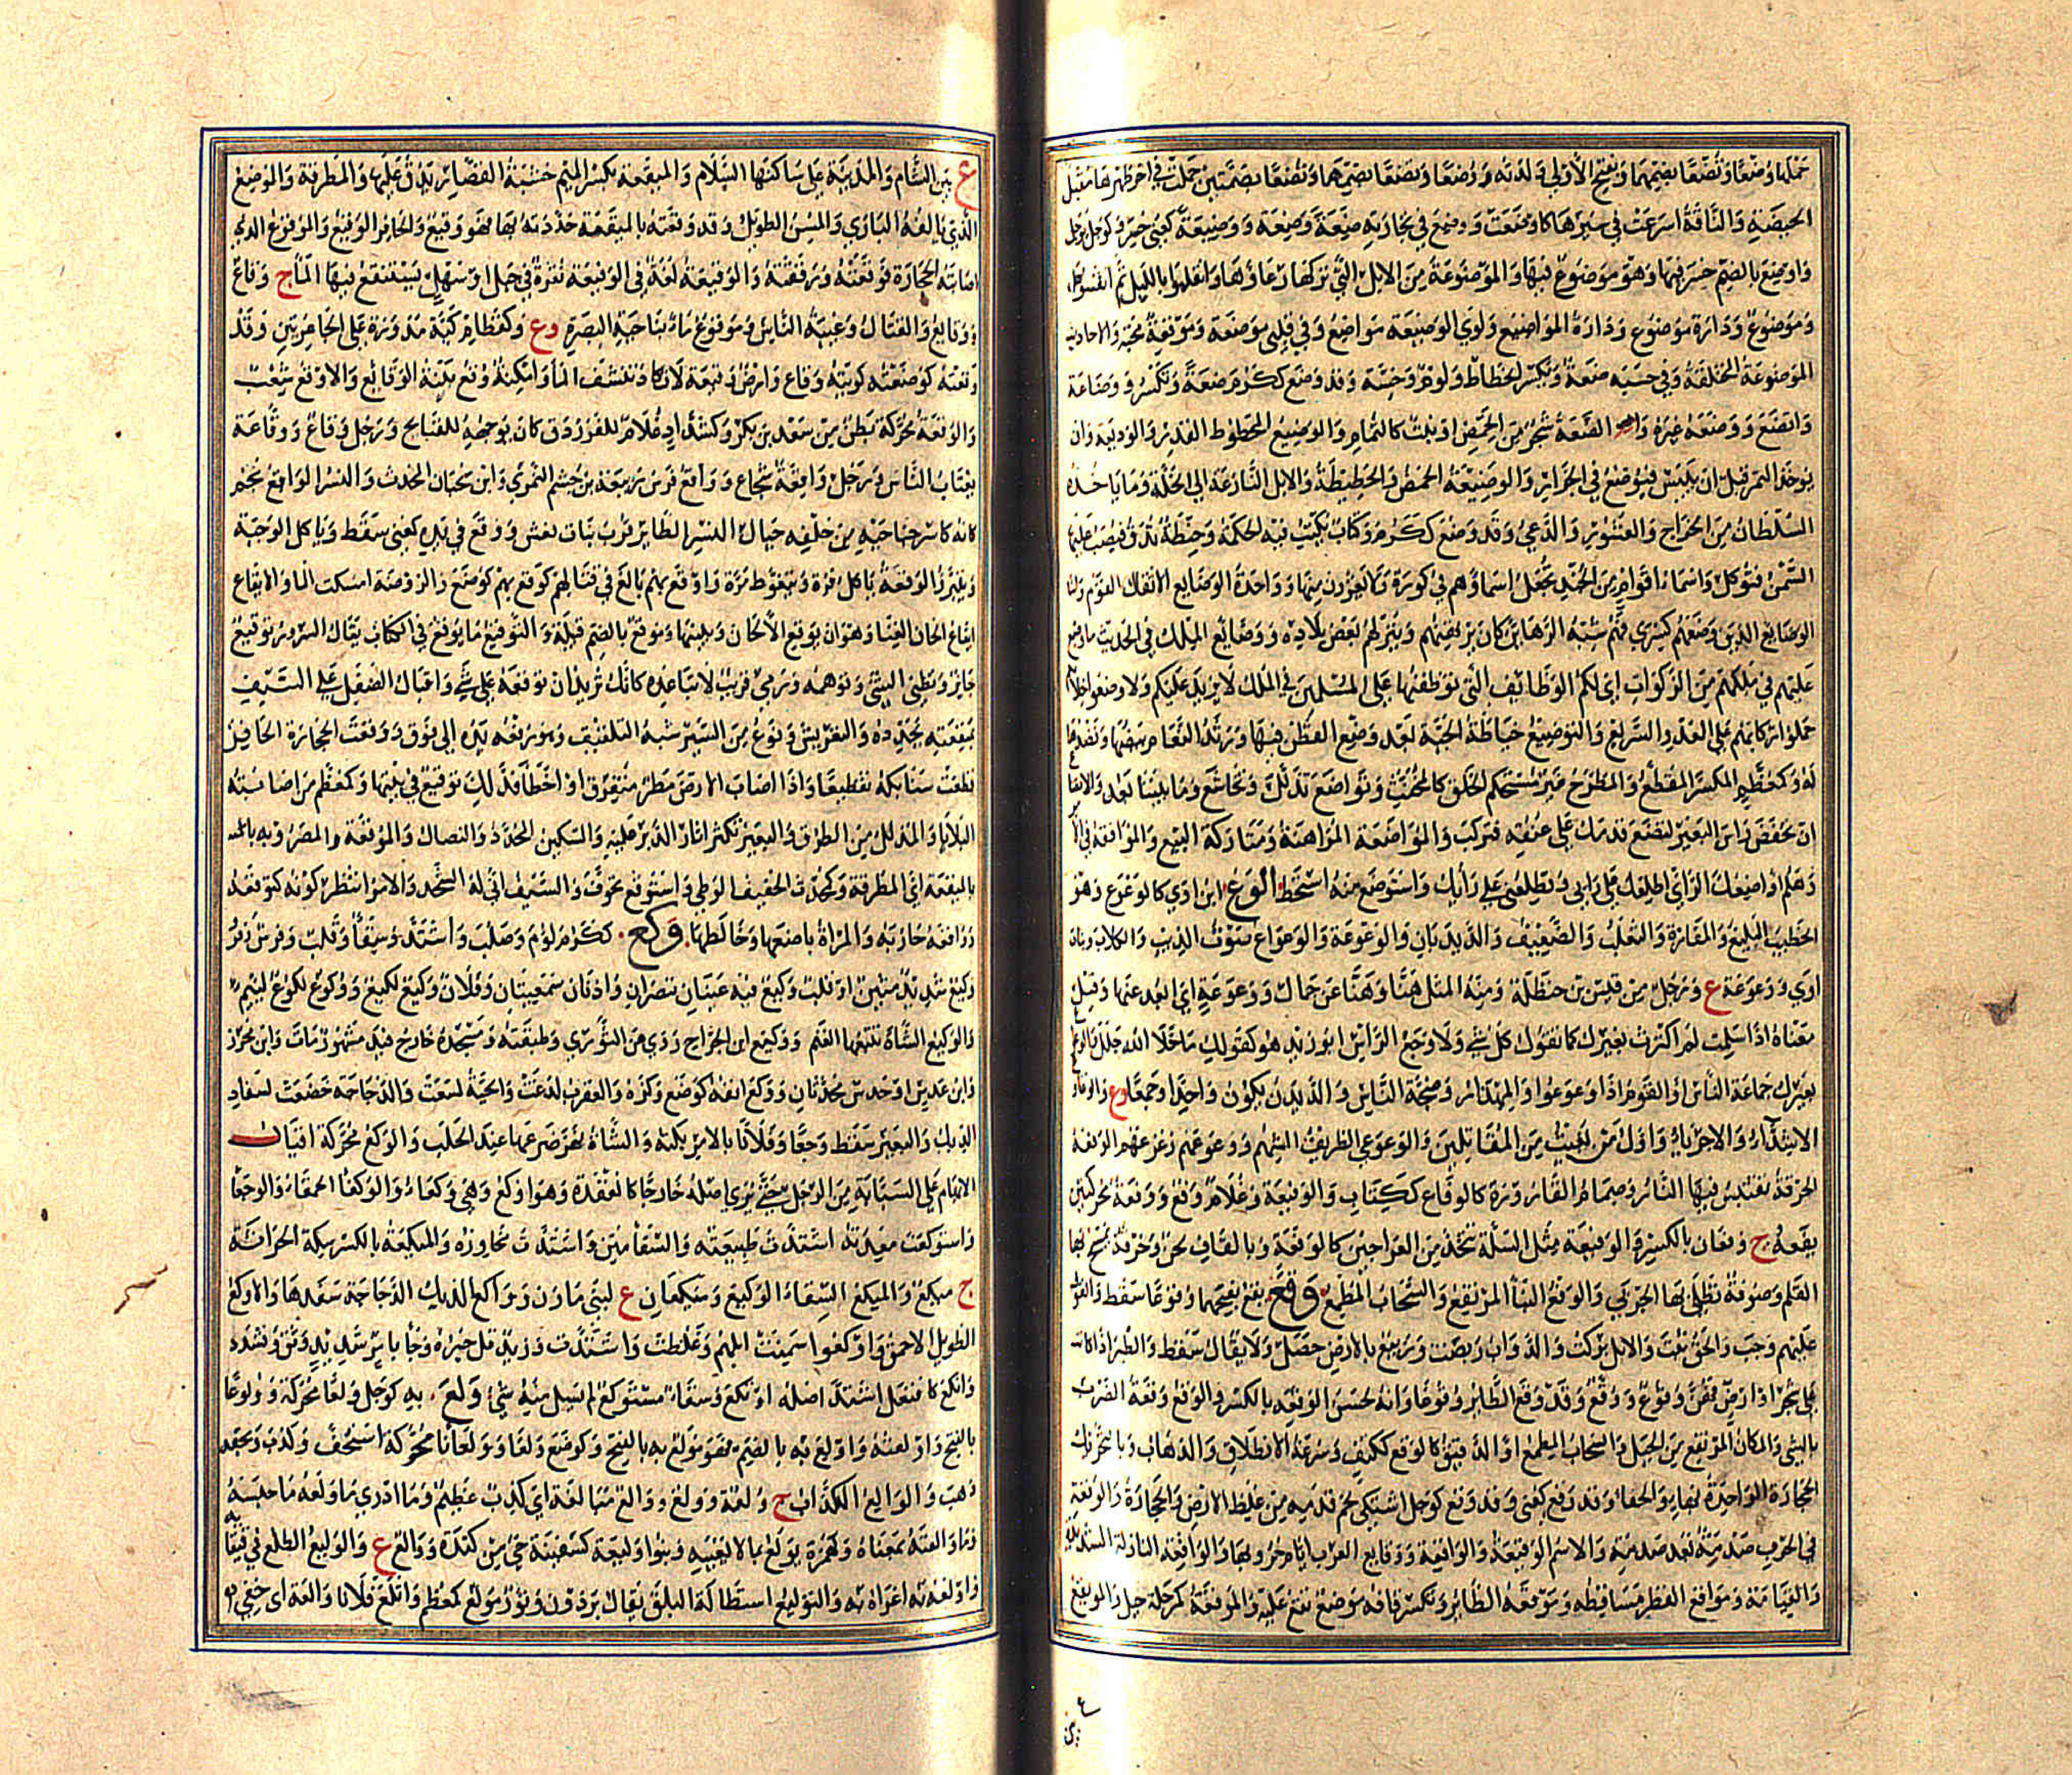 حملها وضعا وتضعا بضمهما وبفتح الاولى ولدته ووضعا وتضعا بضمهما وتضعا بضمتين حملت في اخر طهرها من مقبل
الحيضة والناقة اسرعت في سيرها كاوضعت ووضع في تجارته ضعة وضعة ووضيعة كعنى خسر وكوجل يوجل
واوضع بالضم خسر فيها وهو موضوع فيها والموضوعة من الابل التي تركها رعاؤها وانقلبوا بالليل ثم انفشوها
وموضوع ودارة موضوع ودارة المواضيع ولوى الوضيعة مواضع وفي قلبي موضعة وموقعة محبة والاحاديث
الموضوعة المختلقة وفي حسبه ضعة وبكسر انحطاط ولوم وخسة وقد وضع ككرم ضعة وتكسر ووضاعة
واتضع ووضعه غيره الضعة شجر من الحمض او نبت كالثمام والوضيع المحطوط القدر والوديعة وان
يوخذ التمر قبل ان ييبس فيوضع في الجرار والوضيعة الحمض والحطيطة والابل النازعة الى الخلة وما ياخذه
السلطان من الخراج والعشور والدعي وقد وضع ككرم وكتاب يكتب فيه الحكمة وحنطة تدق فيصب عليها
السمن فتوكل واسماء اقوام من الجند تجعل اسماؤهم في كورة لا يغزون منها وواحدة الوضايع لاثقال القوم واما
الوضايع الذين وضعهم كسرى فهم شبه الرهاين كان يرتهنهم وينزلهم بعض بلاده ووضايع الملك في الحديث ما وضع
عليهم في ملكهم من الزكوات اي لكم الوظايف التي نوظفها على المسلمين في الملك لا نزيد عليكم ولاوضعوا خلالكم
حملوا ركابهم على العدو السريع والتوضيع خياطة الجبة بعد وضع القطن فيها ورثد النعام بيضها وتنضيدها
له وكمعظم المكسر المقطع والمطرح غير مستحكم الخلق كالمخنث وتواضع تذلل وتخاشع وما بيننا بعد والاتضاع
ان تخفض راس البعير لتضع قدمك على عنقه فتركب والمواضعة المراهنة ومتاركة البيع والموافقة في الامر
وهلم اواضعك الراي اطلعك على رايي وتطلعني على رايك واستوضع منه استحط الوع ابن اوى كالوعوع وهو
الخطيب البليغ والمفازة والثعلب والضعيف والديدبان والوعوعة والوعواع صوت الذيب والكلاب وبنات
اوى ووعوعة ع ورجل من قيس بن حنظلة ومنه المثل هنا وهنا عن جمال وعوعة اي ابعد عنها وقيل
معناه اذا سلمت لم اكترث بغيرك كما تقول كل شي ولا وجع الراس ابو زيد هو كقولك ما خلا الله جلل والوعواع
بعيرك جماعة الناس او القوم اذا وعوعوا والمهذار وضجة الناس والديدبان يكون واحدا وجمعا وع
الاشداء والاجرياء واول من يغيث من المقاتلين والوعوعي الظريف الشهم ووعوعهم زعزعهم الوفعة
الخرقة تقتبس فيها النار وصمام القارورة كالوفاع ككتاب والوفيعة وغلام وفع ووفعة محركتين
يفعة ج وفعان بالكسر والوفيعة مثل السلة تتخذ من العراجين كالوفعة وبالقاف لحن وخرقة يمسح بها
القلم وصوفة تطلى بها الجربى والوفع البنا المرتفع والسحاب المطمع وقع يقع بفتحهما وقوعا سقط والقول
عليهم وجب والحق ثبت والابل بركت والدواب ربضت وربيع بالارض حصل ولا يقال سقط والطير اذا كانت
على شجر او ارض فهن وقوع ووقع وقد وقع الطاير وقوعا وانه لحسن الوقعة بالكسر والوقع وقعة الضرب
بالشي والمكان المرتفع من الجبل والسحاب المطمع او الرقيق كالوقع ككتف وسرعة الانطلاق والذهاب وبالتحريك
الحجارة الواحدة بهاء والحفاء وقد وقع كعنى وقد وقع كوجل اشتكى لحم قدمه من غلظ الارض والحجارة والوقعة
في الحرب صدمة بعد صدمة والاسم الوقيعة والواقعة ووقايع العرب ايام حروبها والواقعة النازلة الشديدة
والقيامة ومواقع القطر مساقطه وموقعة الطاير وتكسر قافه موضع يقع عليه والموقعة كمرحلة جبل والوقيع
ع بين الشام والمدينة على ساكنها السلام والميقعة بكسر الميم خشبة القصار يدق عليها والمطرقة والموضع
الذي يالفه البازي والمسن الطويل وقد وقعته بالميقعة حددته بها فهو وقيع والحافر الوقيع والموقوع الذي
اصابته الحجارة فوقعته ورققته والوقيعة لغة في الوقيعة نقرة في جبل او سهل يستنقع فيها الما ج وقاع
ووقايع والقتال وغيبة الناس وموقوع ماء بناحية البصرة وع وكقطام كية مدورة على الجاعرتين وقد
وقعته كوضعته كويته وقاع وارض وقعة لا تكاد تنشف الما وامكنة وقع بينة الوقايع والاوقع شعب
والوقعة محركة بطن من سعد بن بكر وكشداد غلام للفرزدق كان يوجهه للقبايح ورجل وقاع ووقاعة
يغتاب الناس ورجل واقعة شجاع وواقع فرس ربيعة بن جشم النمري وابن سحبان المحدث والنسر الواقع نجم
كانه كاسر جناحيه من خلفه حيال النسر الطاير قرب بنات نعش ووقع في يده كعنى سقط وياكل الوجبة
ويتبرز الوقعة ياكل مرة ويتغوط مرة واوقع بهم بالغ في قتالهم كوقع بهم كوضع والروضة امسكت الما والايقاع
ايقاع الحان الغنا وهو ان يوقع الالحان ويبينها وموقع بالضم قبيلة والتوقيع ما يوقع في الكتاب يقال السرور توقيع
جايز وتظني الشي وتوهمه ورمي قريب لا تباعده كانك تريد ان توقعه على شي واقبال الصيقل على السيف
بميقعته يحدده والتعريس ونوع من السير شبه التلقيف وهو رفعه يده الى فوق ووقعت الحجارة الحافر
قطعت سنابكه تقطيعا واذا اصاب الارض مطر متفرق او اخطا فذلك توقيع في نبتها وكمعظم من اصابته
البلايا والمذلل من الطرق والبعير تكثر اثار الدبر عليه والسكين المحدد والنصال والموقعة والمضروبة بالميـ
بالميقعة اي المطرقة وكمحدث الخفيف الوطي واستوقع تخوف والسيف انى له الشحذ والامر انتظر كونه كتوقعه
وواقعه حاربه والمراة باضعها وخالطها وكع ككرم لوم وصلب واشتد وسقا وقلب وفرس وفر
وكيع شديد متين او قلب وكيع فيه عينان تبصران واذنان سميعتان وفلان وكيع لكيع ووكوع لكوع لييم
والوكيع الشاة تتبعها الغنم ووكيع ابن الجراح روى عن الثوري وطبقته ومسجده خارج فيد مشهور مات وابن محرز
وابن عدس او حدس محدثان ووكع انفه كوضع وكزه والعقرب لدغت والحية لسعت والدجاجة خضعت لسفاد
الديك والبعير سقط وجعا وفلانا بالامر بكته والشاة نهز ضرعها عند الحلب والوكع محركة اقبال
الابهام على السبابة من الرجل حتى يرى اصله خارجا كالعقدة وهو اوكع وهي وكعاء والوكعاء الحمقاء والوجعا
واستوكعت معدته اشتدت طبيعته والسقاء متن واشتدت مخاوزه والميكعة بالكسر سكة الحراثة
ج ميكع والميكع السقاء الوكيع وميكعان ع لبني مازن وواكع الديك الدجاجة سفدها والاوكع
الطويل الاحمق واوكعوا سمنت ابلهم وغلظت واشتدت وزيد قل خيره وجاء بامر شديد وتوثق وتشدد
واتكع كافتعل اشتد اصله اوتكع وسقاء مستوكع لم يسل منه شي ولع به كوجل ولعا محركة وولوعا
بالفتح واولعته واولع به بالضم فهو مولع به بالفتح وكوضع ولعا وولعانا محركة استخف وكذب وبحقه
ذهب والوالع الكذاب ج ولعة وولع ووالع مبالغة اي كذب عظيم وما ادري ما ولعه ما حبسه
وما والعته بمعناه وكهمزة يولع بما لا يعنيه وبنو وليعة كسفينة حي من كندة ووالع ع والوليع الطلع في قيقايه
واولعته به اغراه به والتوليع استطالة البلق يقال برذون وثور مولع كمعظم واتلع فلانا والعة اي خفي